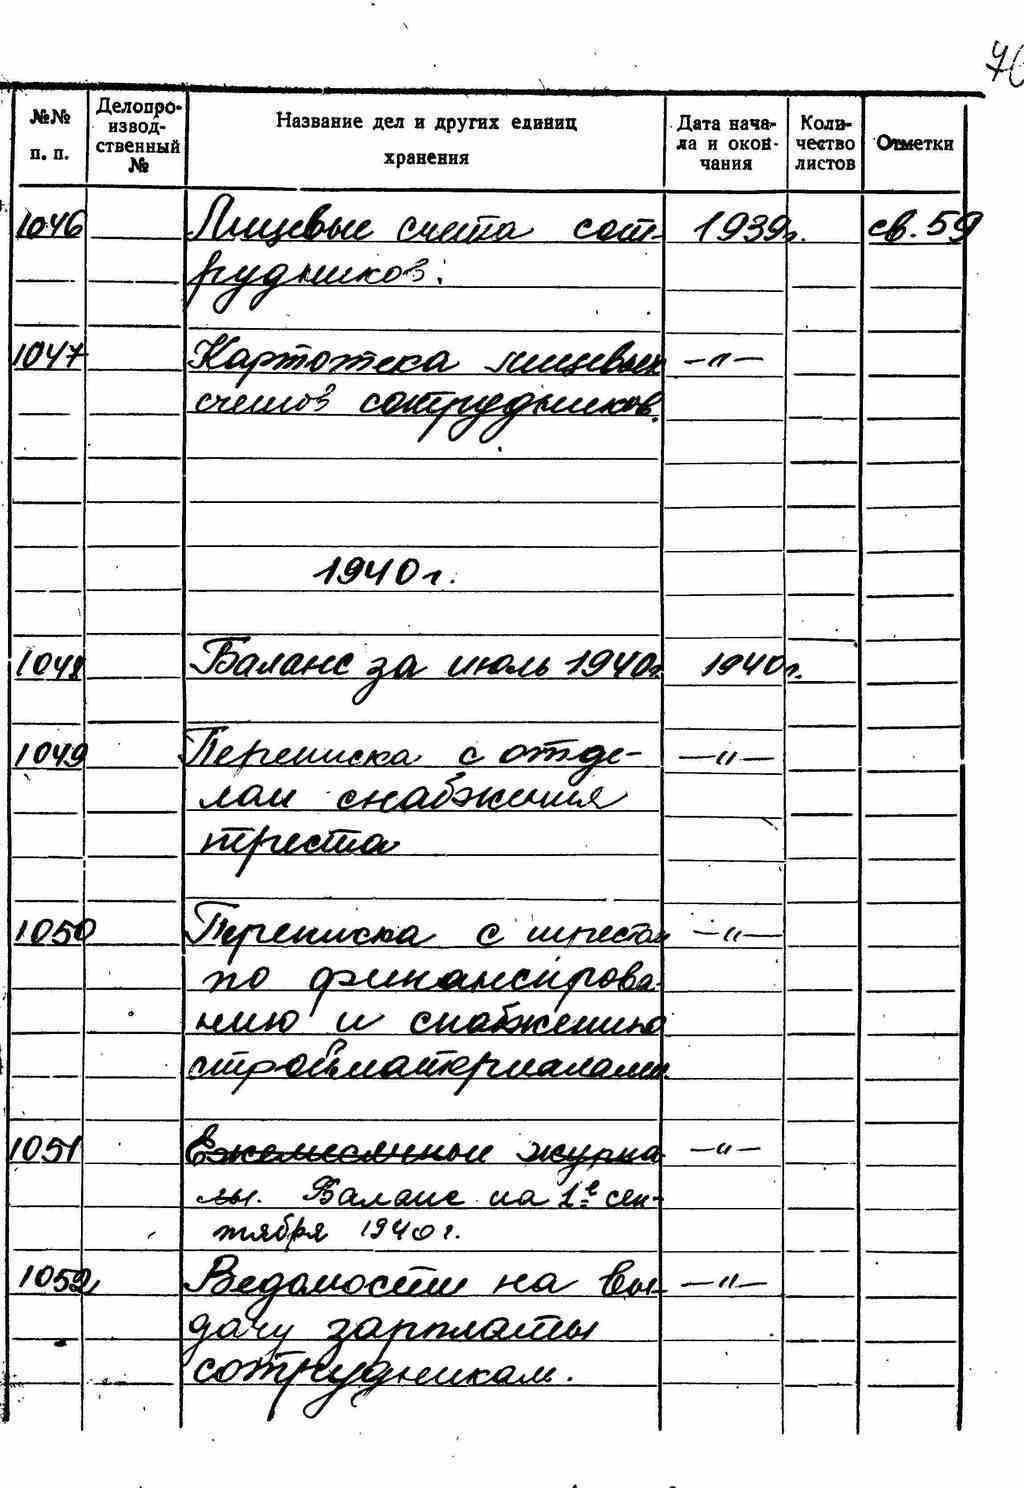 №№ п. п. Делопро-извод-ственный № Название дел и других единиц хранения Дата нача-ла и окон-чания Коли-чество листов Отметки
1046 Лицевые счета сот- 1939г. св. 59
рудников.
1047 Картотека лицевых —"—
счетов сотрудников.
1940 г.
1048 Баланс за июль 1940г. 1940г.
1049 Переписка с отде- —"—
лом снабжения
треста
1050 Переписка с трестом —"—
по финансирова-
нию и снабжению
стройматериалами.
1051 Ежемесячные журна- —"—
лы. Баланс на 1е сен-
тября 1940 г.
1052 Ведомости на вы- —"—
дачу зарплаты
сотрудникам.